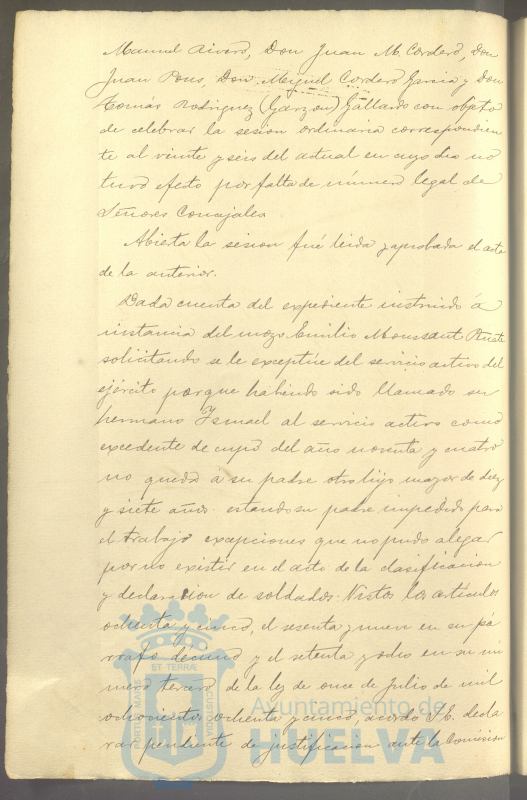 Manuel Alvaro, Don Juan M. Cordero, Don
Juan Pons, Don Miguel Cordero Garcia y Don
Tomás Rodriguez (Garzon) Gallardo con objeto
de celebrar la sesion ordinaria correspondien
te al veinte y seis del actual en cuyo dia no
tuvo efecto por falta de número legal de
Señores Concejales.
Abierta la sesion fué leida y aprobada el acta
de la anterior.
Dada cuenta del expediente instruido á
instancia del mozo Emilio Moussaut
solicitando se le exceptúe del servicio activo del
ejército porque habiendo sido llamado su
hermano Ismael al servicio activo como
excedente de cupo del año noventa y cuatro
no quedó a su padre otro hijo mayor de diez
y siete años estando su padre impedido para
el trabajo excepciones que no pudo alegar
por no existir en el acto de la clasificacion
y declaracion de soldados. Vistos los artículos
ochenta y cinco, el sesenta y nueve en su pá
rrafo décimo y el setenta y ocho en su nú
mero tercero de la ley de once de Julio de mil
ochocientos ochenta y cinco, acordó S.E. decla
rar pendiente de justificacion ante la Comision
PORTUS MARIS ET TERRÆ CUSTODIA
Ayuntamiento de
HUELVA